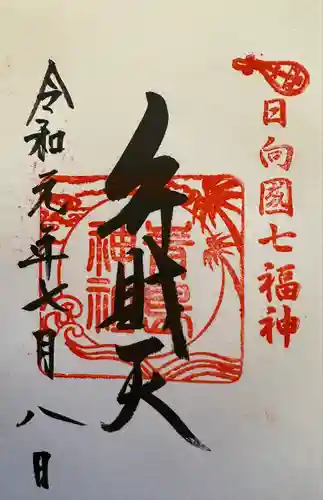 日向國七福神
弁財天
青島神社
令和元年七月八日